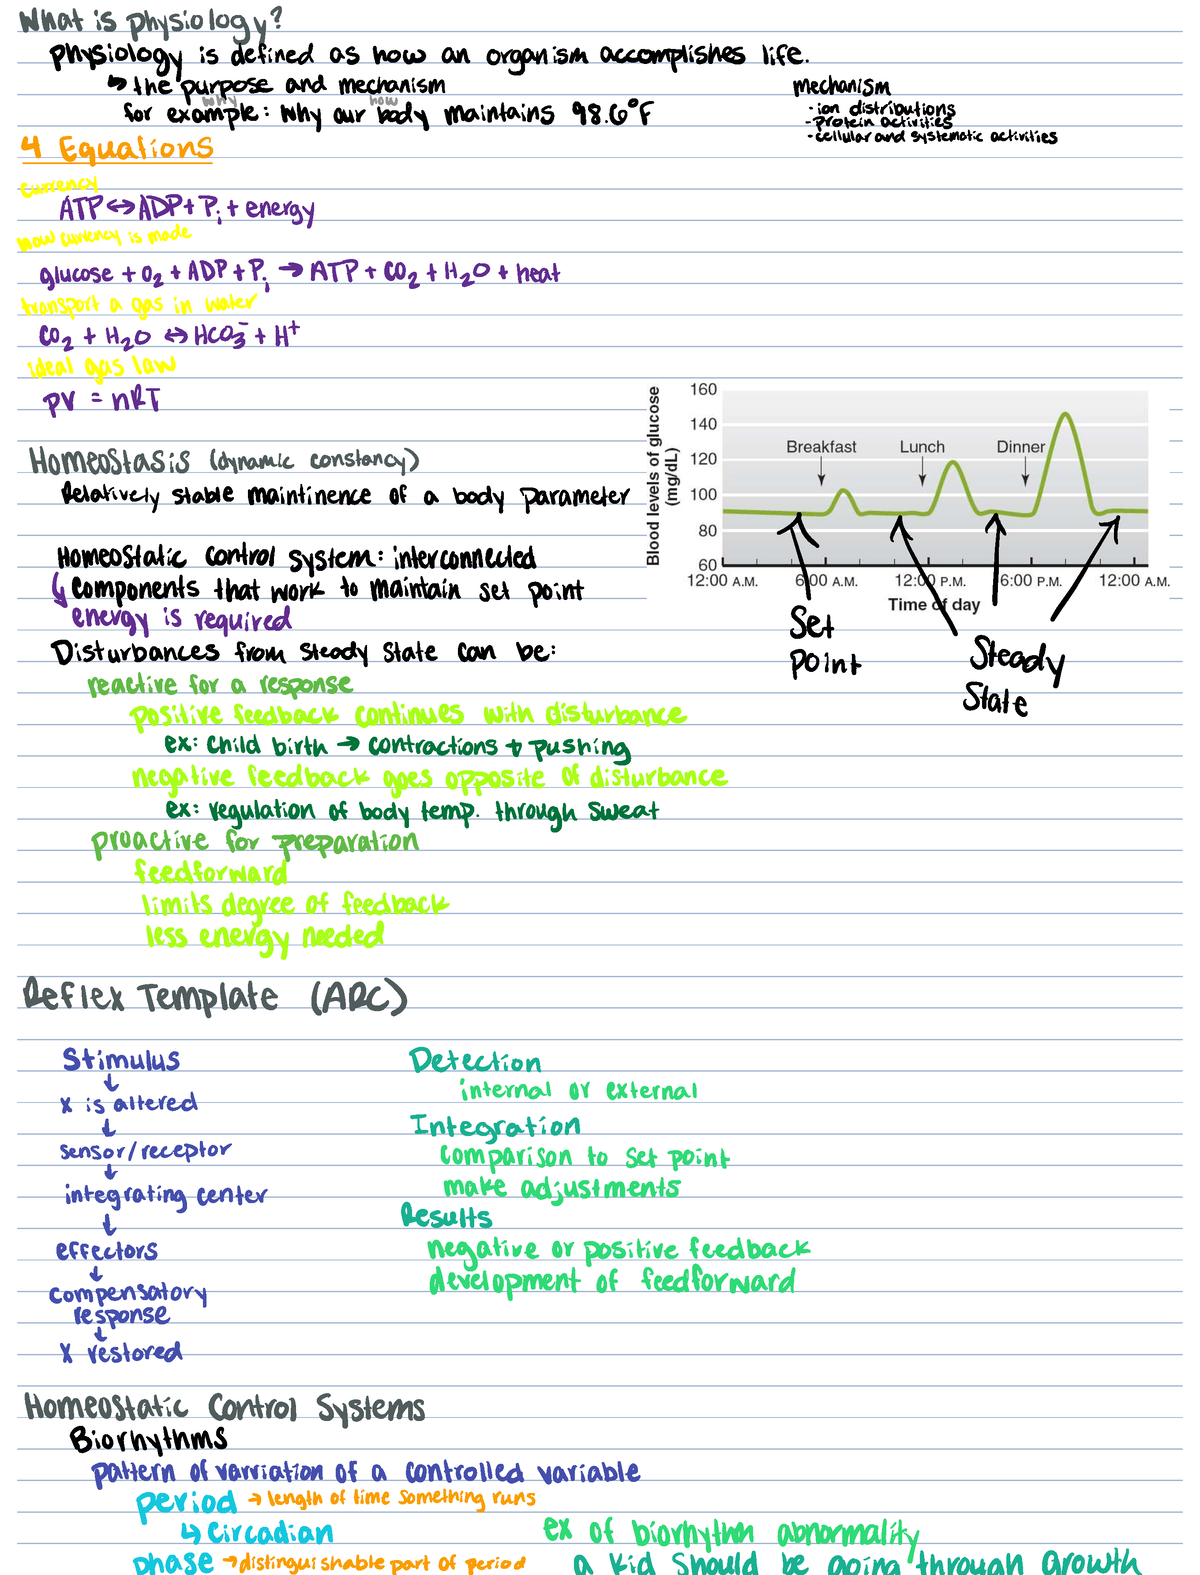 What is physiology?
physiology is defined as how an organism accomplishes life.
↳ the purpose and mechanism
why how
for example: Why our body maintains 98.6°F
mechanism
- ion distributions
- protein activities
- cellular and systematic activities
4 Equations
currency
ATP ↔ ADP + Pi + energy
how currency is made
glucose + O₂ + ADP + Pi → ATP + CO₂ + H₂O + heat
transport a gas in water
CO₂ + H₂O ↔ HCO₃⁻ + H⁺
ideal gas law
PV = nRT
Homeostasis (dynamic constancy)
Relatively stable maintinence of a body parameter
Homeostatic control system: interconnected
components that work to maintain set point
↳ energy is required
Blood levels of glucose
(mg/dL)
160
140
120
100
80
60
Breakfast Lunch Dinner
12:00 A.M. 6:00 A.M. 12:00 P.M. 6:00 P.M. 12:00 A.M.
Time of day
Set
point
Steady
State
Disturbances from steady state can be:
reactive for a response
positive feedback continues with disturbance
ex: child birth → contractions + pushing
negative feedback goes opposite of disturbance
ex: regulation of body temp. through sweat
proactive for preparation
feedforward
limits degree of feedback
less energy needed
Reflex Template (ARC)
Stimulus
↓
X is altered
↓
sensor/receptor
↓
integrating center
↓
effectors
↓
compensatory
response
↓
X restored
Detection
internal or external
Integration
comparison to set point
make adjustments
Results
negative or positive feedback
development of feedforward
Homeostatic Control Systems
Biorhythms
pattern of varriation of a controlled variable
period → length of time something runs
↳ circadian
phase → distinguishable part of period
ex of biorhythm abnormality
a kid should be going through growth